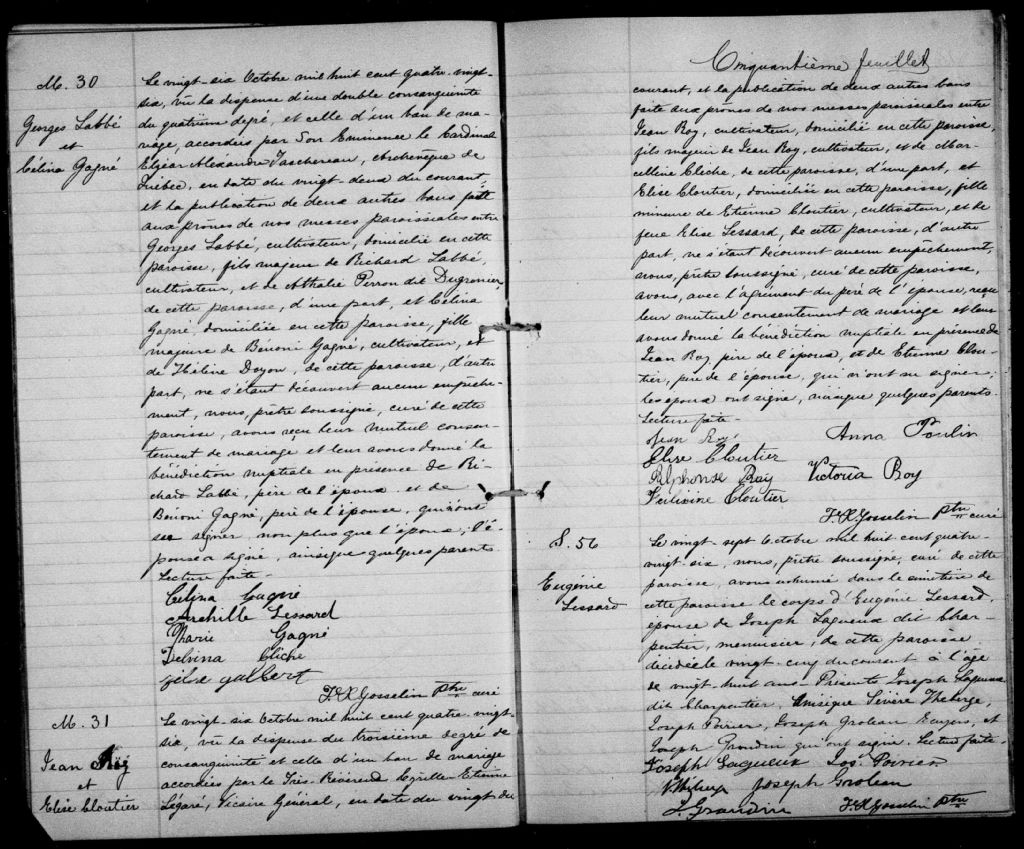 M. 30
Georges Labbé
et
Célina Gagné
Le vingt-six Octobre mil huit cent quatre-vingt-
six, vu la dispense d'une double consanguinité
du quatrième degré, et celle d'un ban de ma-
riage, accordés par Son Eminence le Cardinal
Elzéar Alexandre Taschereau, Archevêque de
Québec, en date du vingt-deux du courant,
et la publication de deux autres bans faite
aux prônes de nos messes paroissiales entre
Georges Labbé, cultivateur, domicilié en cette
paroisse, fils majeur de Richard Labbé,
cultivateur, et de Nathalie Perron dit Dugrenier,
de cette paroisse, d'une part, et Célina
Gagné, domiciliée en cette paroisse, fille
majeure de Bénoni Gagné, cultivateur, et
de Hélène Doyon, de cette paroisse, d'autre
part, ne s'étant découvert aucun empêche-
ment, nous, prêtre soussigné, curé de cette
paroisse, avons reçu leur mutuel consen-
tement de mariage et leur avons donné la
bénédiction nuptiale en présence de Ri-
chard Labbé, père de l'époux et de
Bénoni Gagné, père de l'épouse, qui n'ont
su signer, non plus que l'époux; l'é-
pouse a signé, ainsique quelques parents.
Lecture faite.
Célina Gagné
Archille Lessard
Marie Gagné
Delvina Cliche
Gélse galbert
F.X. Gosselin Ptre curé
M. 31
Jean Roy
et
Elise Cloutier
Le vingt-six Octobre mil huit cent quatre-vingt-
six, vu la dispense du troisième degré de
consanguinité et celle d'un ban de mariage
accordées par le Très-Révérend Cyrille-Etienne
Légaré, Vicaire Général, en date du vingt du
Cinquantième feuillet
courant, et la publication de deux autres bans
faite aux prônes de nos messes paroissiales entre
Jean Roy, cultivateur, domicilié en cette paroisse,
fils majeur de Jean Roy, cultivateur, et de Mar-
celline Cliche, de cette paroisse, d'une part, et
Elise Cloutier, domiciliée en cette paroisse, fille
mineure de Etienne Cloutier, cultivateur, et de
feue Elise Lessard, de cette paroisse, d'autre
part, ne s'étant découvert aucun empêchement,
nous, prêtre soussigné, curé de cette paroisse,
avons, avec l'agrément du père de l'épouse, reçu
leur mutuel consentement de mariage et leur
avons donné la bénédiction nuptiale en présence de
Jean Roy, père de l'époux, et de Etienne Clou-
tier, père de l'épouse, qui n'ont su signer;
les époux ont signé, ainsique quelques parents.
Lecture faite.
Jean Roy Anna Poulin
Elise Cloutier
Alphonse Roy Victoria Roy
Cloutier
F.X. Gosselin Ptre curé
S. 56
Eugénie
Lessard
Le vingt-sept Octobre mil huit cent quatre-
vingt-six, nous, prêtre soussigné, curé de cette
paroisse, avons inhumé dans le cimetière de
cette paroisse le corps d'Eugénie Lessard,
épouse de Joseph Lagueux dit Char-
pentier, menuisier, de cette paroisse
décédée le vingt-cinq du courant à l'âge
de vingt-huit ans. Présents Joseph Lagueux
dit Charpentier, ainsique Sévère Théberge,
Joseph Poirier, Joseph Groleau Ecuyers, et
Joseph Grondin qui ont signé. Lecture faite.
Joseph Lagueux Jos. Poirier
Joseph Groleau
J. Grondin F.X. Gosselin Ptre